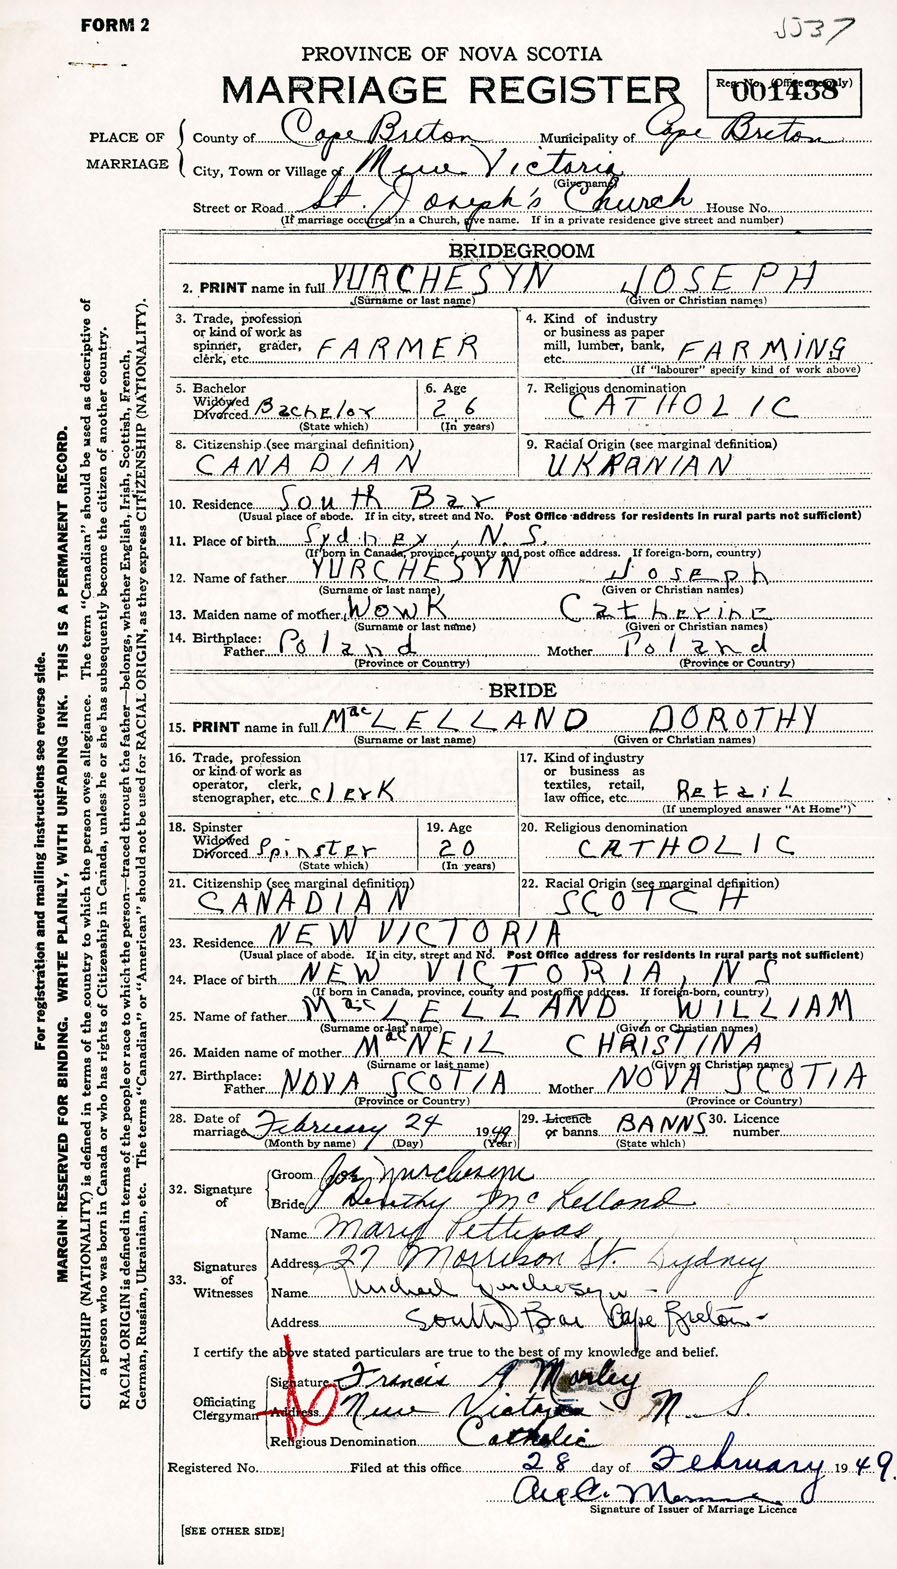 FORM 2
5537
PROVINCE OF NOVA SCOTIA
MARRIAGE REGISTER
Reg. No. (Office use only)
001438
PLACE OF MARRIAGE
County of Cape Breton Municipality of Cape Breton
City, Town or Village of New Victoria
(Give name)
Street or Road St. Joseph's Church House No.
(If marriage occurred in a Church, give name. If in a private residence give street and number)
BRIDEGROOM
2. PRINT name in full YURCHESYN JOSEPH
(Surname or last name) (Given or Christian names)
3. Trade, profession or kind of work as spinner, grader, clerk, etc. FARMER
4. Kind of industry or business as paper mill, lumber, bank, etc. FARMING
(If "labourer" specify kind of work above)
5. Bachelor Widowed Divorced Bachelor
(State which)
6. Age 26
(In years)
7. Religious denomination
CATHOLIC
8. Citizenship (see marginal definition)
CANADIAN
9. Racial Origin (see marginal definition)
UKRANIAN
10. Residence South Bar
(Usual place of abode. If in city, street and No. Post Office address for residents in rural parts not sufficient)
11. Place of birth Sydney, N.S.
(If born in Canada, province, county and post office address. If foreign-born, country)
12. Name of father YURCHESYN Joseph
(Surname or last name) (Given or Christian names)
13. Maiden name of mother WOWK Catherine
(Surname or last name) (Given or Christian names)
14. Birthplace: Father Poland Mother Poland
(Province or Country) (Province or Country)
BRIDE
15. PRINT name in full MacLELLAND DOROTHY
(Surname or last name) (Given or Christian names)
16. Trade, profession or kind of work as operator, clerk, stenographer, etc. clerk
17. Kind of industry or business as textiles, retail, law office, etc. Retail
(If unemployed answer "At Home")
18. Spinster Widowed Divorced Spinster
(State which)
19. Age 20
(In years)
20. Religious denomination
CATHOLIC
21. Citizenship (see marginal definition)
CANADIAN
22. Racial Origin (see marginal definition)
SCOTCH
23. Residence NEW VICTORIA
(Usual place of abode. If in city, street and No. Post Office address for residents in rural parts not sufficient)
24. Place of birth NEW VICTORIA, NS
(If born in Canada, province, county and post office address. If foreign-born, country)
25. Name of father MacLELLAND, WILLIAM
(Surname or last name) (Given or Christian names)
26. Maiden name of mother MacNEIL CHRISTINA
(Surname or last name) (Given or Christian names)
27. Birthplace: Father NOVA SCOTIA Mother NOVA SCOTIA
(Province or Country) (Province or Country)
28. Date of marriage February 24 1949
(Month by name) (Day) (Year)
29. Licence or banns BANNS
(State which)
30. Licence number
32. Signature of
Groom Joe Yurchesyn
Bride Dorothy McLelland
33. Signatures of Witnesses
Name Mary Pettipas
Address 27 Morrison St. Sydney
Name Michael Yurchesyn
Address South Bar Cape Breton
I certify the above stated particulars are true to the best of my knowledge and belief.
Officiating Clergyman
Signature Francis A Morley
Address New Victoria N.S.
Religious Denomination Catholic
Registered No. Filed at this office 28 day of February 1949.
Signature of Issuer of Marriage Licence
[SEE OTHER SIDE]
For registration and mailing instructions see reverse side.
MARGIN RESERVED FOR BINDING. WRITE PLAINLY, WITH UNFADING INK. THIS IS A PERMANENT RECORD.
CITIZENSHIP (NATIONALITY) is defined in terms of the country to which the person owes allegiance. The term "Canadian" should be used as descriptive of
a person who was born in Canada or who has rights of Citizenship in Canada, unless he or she has subsequently become the citizen of another country.
RACIAL ORIGIN is defined in terms of the people or race to which the person—traced through the father—belongs, whether English, Irish, Scottish, French,
German, Russian, Ukrainian, etc. The terms "Canadian" or "American" should not be used for RACIAL ORIGIN, as they express CITIZENSHIP (NATIONALITY).